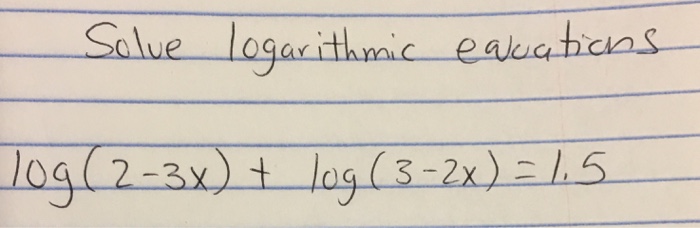 Solve logarithmic equations
log(2-3x) + log(3-2x) = 1.5